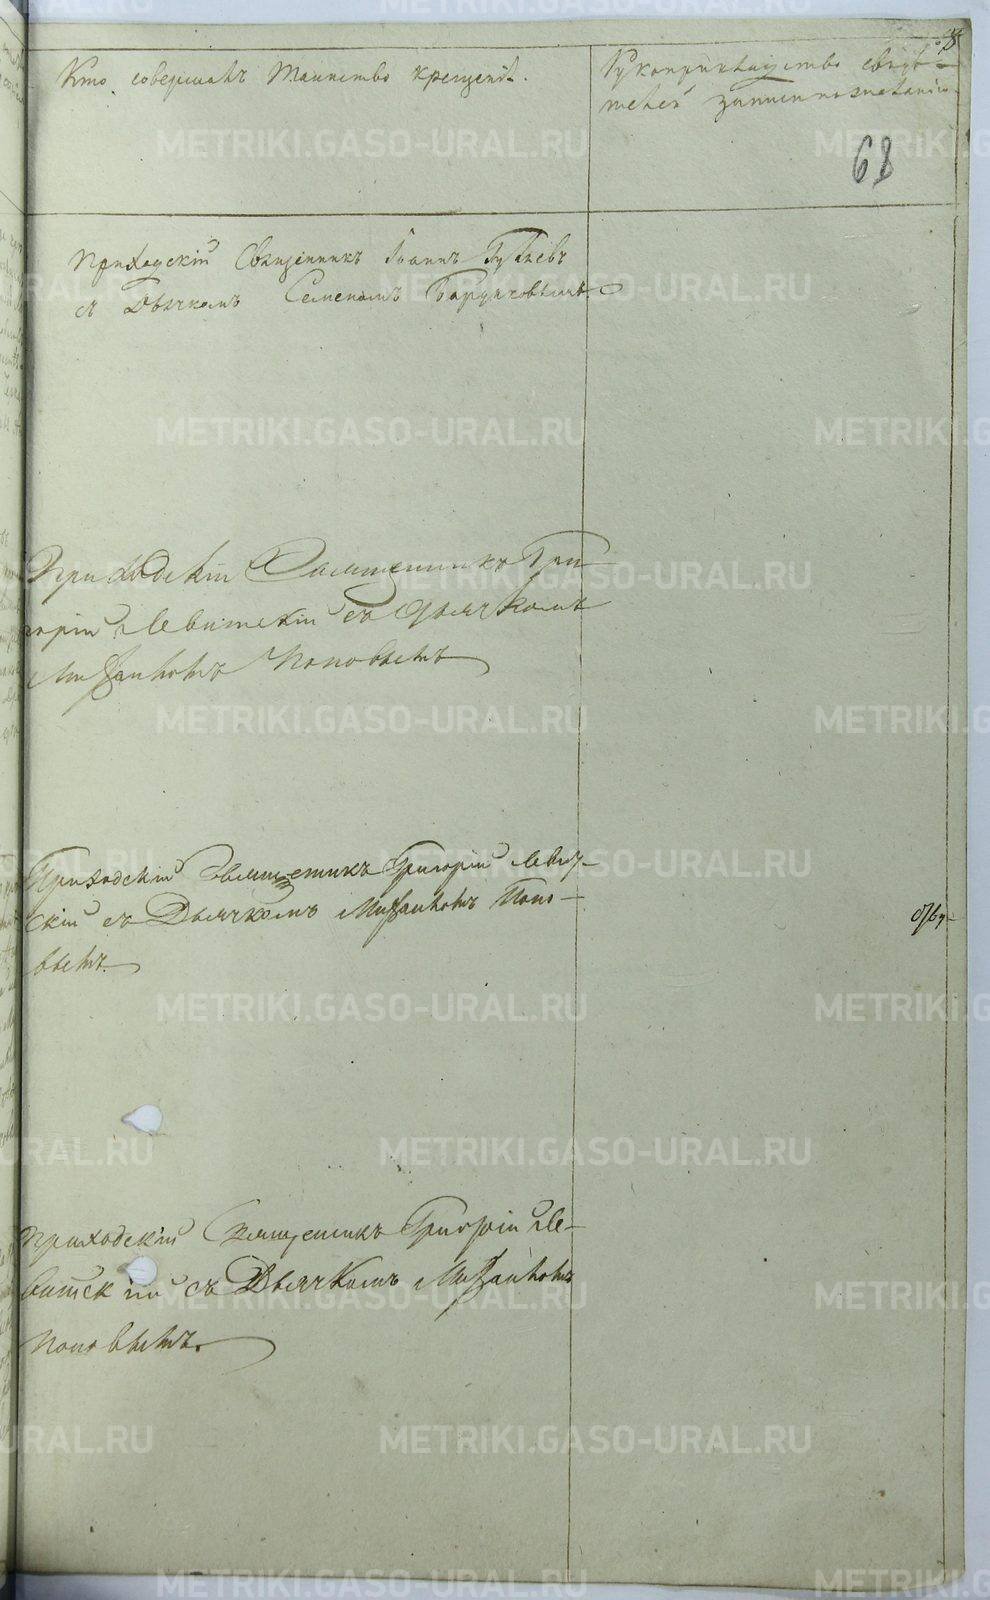 Кто совершалъ Таинство крещенія.
Рукоприкладство свидѣ-
телей записи по желанію.
68
Приходскій Священникъ Іоаннъ
съ Дьячкомъ Семеномъ
Приходскій Священникъ Гри
горій Левитскій съ Дьячкомъ
Михаиломъ Поповымъ
Приходскій Священикъ Григорій Левит-
скій съ Дьячкомъ Михаиломъ Попо-
вымъ.
Приходскій Священикъ Григорій Ле-
витскій съ Дьячкомъ Михаиломъ
Поповымъ.
METRIKI.GASO-URAL.RU